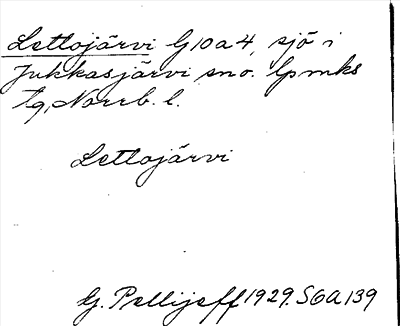 Lettojärvi G10a4, sjö i
Jukkasjärvi sno. Lpmks
tg, Norrb. l.
Lettojärvi
G. Pellijeff 1929. S6A139